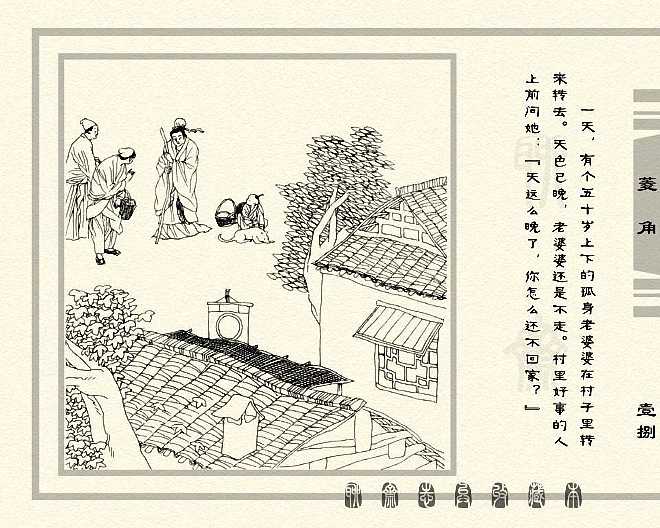 一天，有个五十岁上下的孤身老婆婆在村子里转
来转去。天色已晚，老婆婆还是不走。村里好事的人
上前问她：「天这么晚了，你怎么还不回家？」
菱角
壹捌